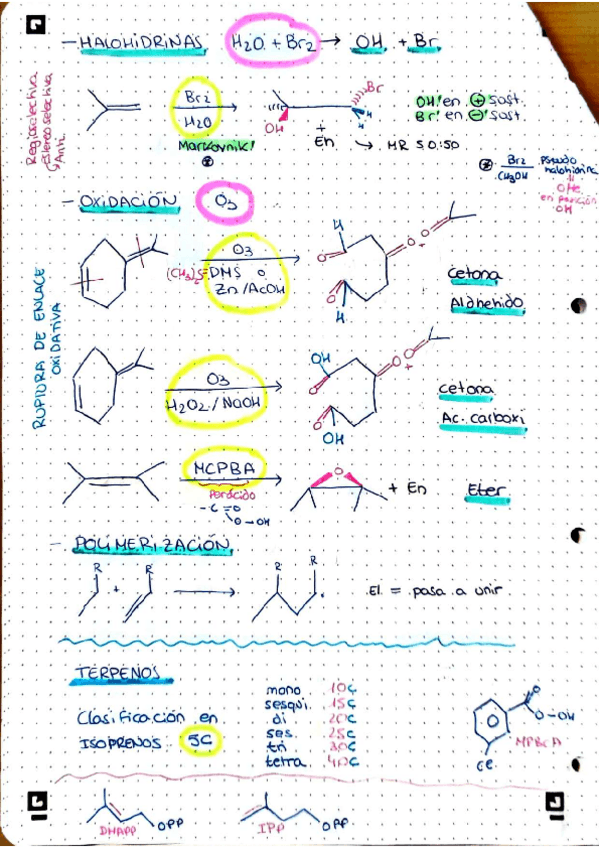 - HALOHIDRINAS H2O + Br2 → OH + Br
Regioselectiva
estereoselectiva
↳Anti.
Br2
H2O
Markovnik!
OH
Br
H
H
+
En
↳ MR 50:50
OH' en ⊕ sust.
Br' en ⊖ sust.
Br2
CH3OH
pseudo
halohidrina
OMe
en posición
OH
- OXIDACIÓN O3
RUPTURA DE ENLACE
OXIDATIVA
O3
(CH3)2S=DMS o
Zn/AcOH
H
O
O
O
O
+
H
Cetona
Aldhehido
O3
H2O2/NaOH
OH
O
O
O
O
+
OH
cetona
Ac. carboxi
MCPBA
Perácido
-C=O
O-OH
O
+ En
Eter
- POLIMERIZACIÓN
R
+
R
R
R
El = pasa a unir
TERPENOS
Clasificación en
ISOPRENOS 5C
mono 10C
sesqui. 15C
di 20C
ses. 25C
tri 30C
tetra 40C
O
O-OH
MPBCA
Cl
DMAPP
OPP
IPP
OPP